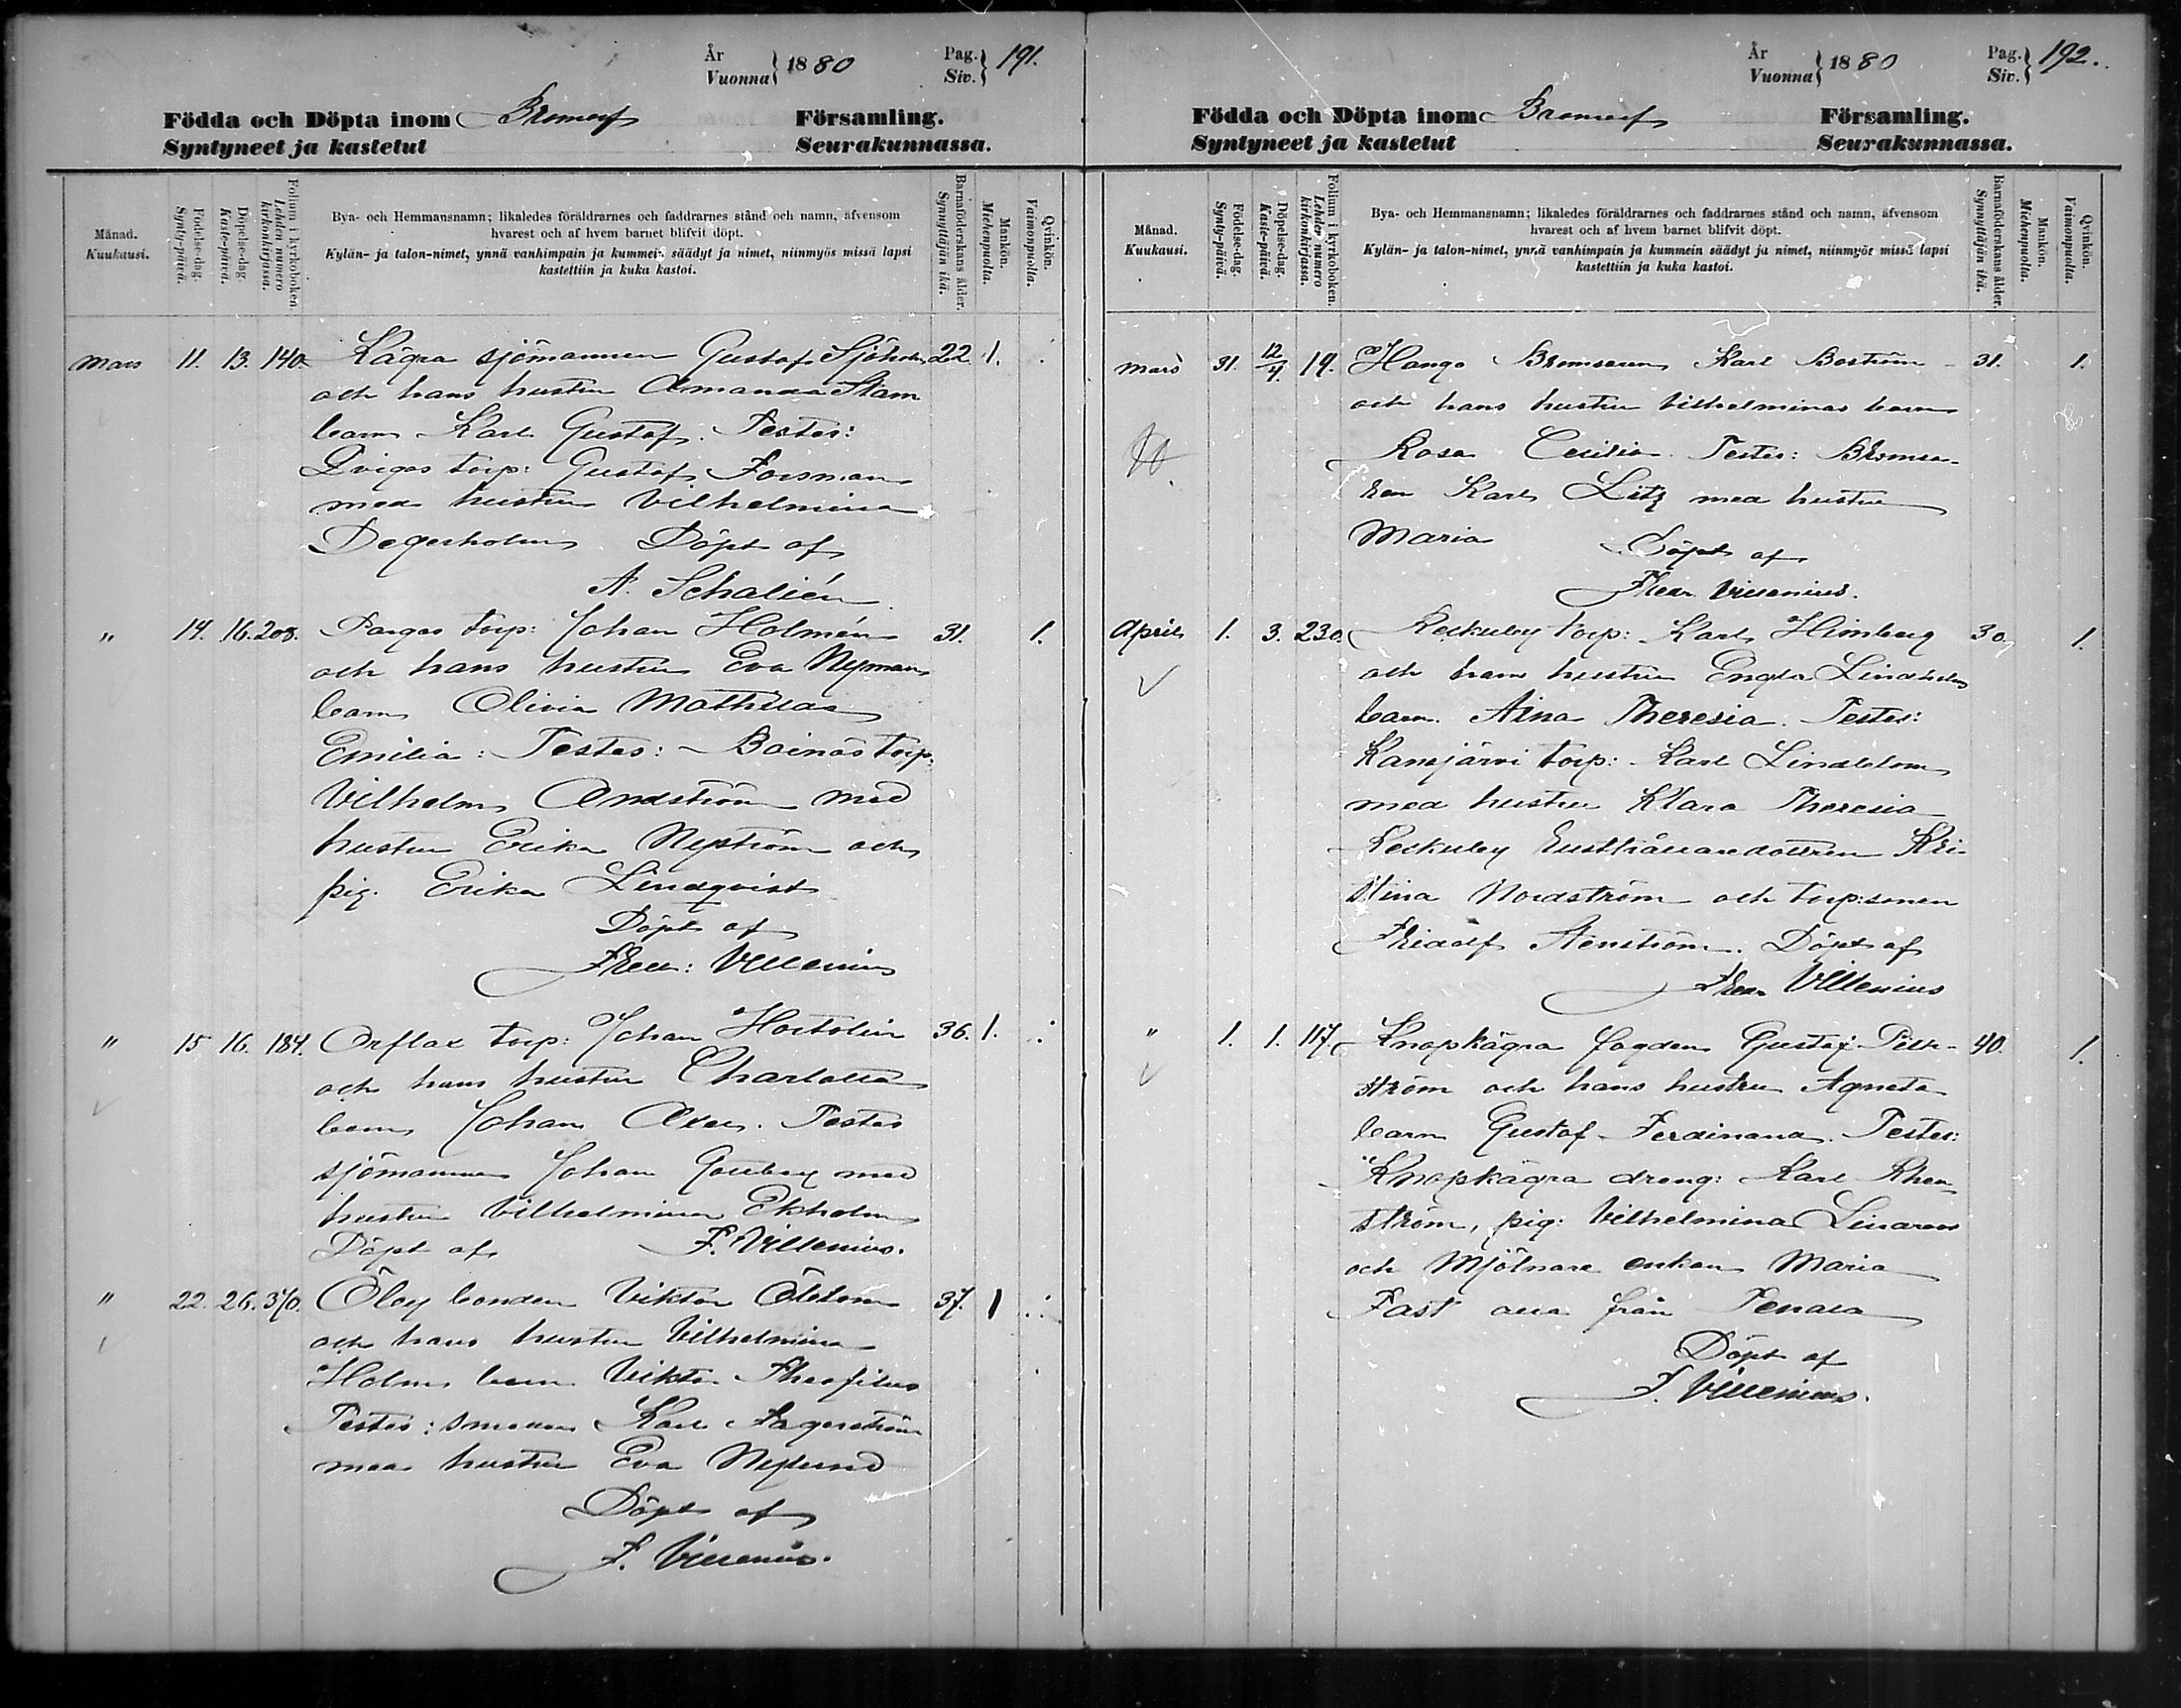 År
Vuonna } 1880
Pag.
Siv. } 191.
Födda och Döpta inom Bromarf Församling.
Syntyneet ja kastetut Seurakunnassa.
Månad.
Kuukausi.
Födelse-dag.
Synty-päivä.
Döpelse-dag.
Kaste-päivä.
Folium i kyrkoboken.
Lehden numero
kirkonkirjassa.
Bya- och Hemmansnamn; likaledes föräldrarnes och faddrarnes stånd och namn, äfvensom
hvarest och af hvem barnet blifvit döpt.
Kylän- ja talon-nimet, ynnä vanhimpain ja kummein säädyt ja nimet, niinmyös missä lapsi
kastettiin ja kuka kastoi.
Barnaföderskans ålder.
Synnyttäjän ikä.
Mankön.
Miehenpuolta.
Qvinkön.
Vaimonpuolta.
Mars 11. 13. 140. Kägra sjömannen Gustaf Sjöholm 22. 1.
och hans hustru Amanda Stam
barn Karl Gustaf. Testes:
torp: Gustaf Forsman
med hustru Vilhelmina
Degerholm Döpt af
A. Schalién
" 14. 16. 208. Pargas torp: Johan Holmén 31. 1.
och hans hustru Eva Nyman
barn Olivia Mathilda
Emilia: Testes: Boinäs torp.
Vilhelm Andström med
hustru Erika Nyström och
pig. Erika Lindqvist
Döpt af
Fredr: Villenius
" 15 16. 184. Orflax torp: Johan Hortolin 36. 1.
och hans hustru Charlotta
barn Johan Axel. Testes
sjömannen Johan med
hustru Vilhelmina Ekholm
Döpt af F. Villenius.
" 22. 26. 370. Öby bonden Viktor 37. 1
och hans hustru Vilhelmina
Holm barn Viktor Theofilus
Testes: smeden Karl Fagerström
med hustru Eva Nylund
Döpt af
F. Villenius.
År
Vuonna } 1880
Pag.
Siv. } 192.
Födda och Döpta inom Bromarf Församling.
Syntyneet ja kastetut Seurakunnassa.
Månad.
Kuukausi.
Födelse-dag.
Synty-päivä.
Döpelse-dag.
Kaste-päivä.
Folium i kyrkoboken.
Lehden numero
kirkonkirjassa.
Bya- och Hemmansnamn; likaledes föräldrarnes och faddrarnes stånd och namn, äfvensom
hvarest och af hvem barnet blifvit döpt.
Kylän- ja talon-nimet, ynnä vanhimpain ja kummein säädyt ja nimet, niinmyös missä lapsi
kastettiin ja kuka kastoi.
Barnaföderskans ålder.
Synnyttäjän ikä.
Mankön.
Miehenpuolta.
Qvinkön.
Vaimonpuolta.
Mars 31. 12/4. 19. Hangö Bromsaren Karl Boström 31. 1.
och hans hustru Vilhelminas barn
Rosa Cecilia. Testes: Bromsa-
ren Karl Litz med hustru
Maria Döpt af
Fredr Villenius.
April 1. 3. 230. Rekuby torp: Karl Himberg 30, 1.
och hans hustru Engla Lindholm
barn. Aina Theresia. Testes:
Kansjärvi torp: Karl Lindblom
med hustru Klara Theresia
Rekuby Kri-
stina Nordström och torp:sonen
Fridolf Stenström. Döpt af
Fredr Villenius
" 1. 1. 117. Knopkägra fogden Gustaf 40. 1.
ström och hans hustru Agneta
barn Gustaf Ferdinand. Testes:
Knopkägra dreng: Karl Rhen-
ström, pig: Vilhelmina Linaroos
och Mjölnare enkan Maria
Fast alla från Tenala
Döpt af
F. Villenius.